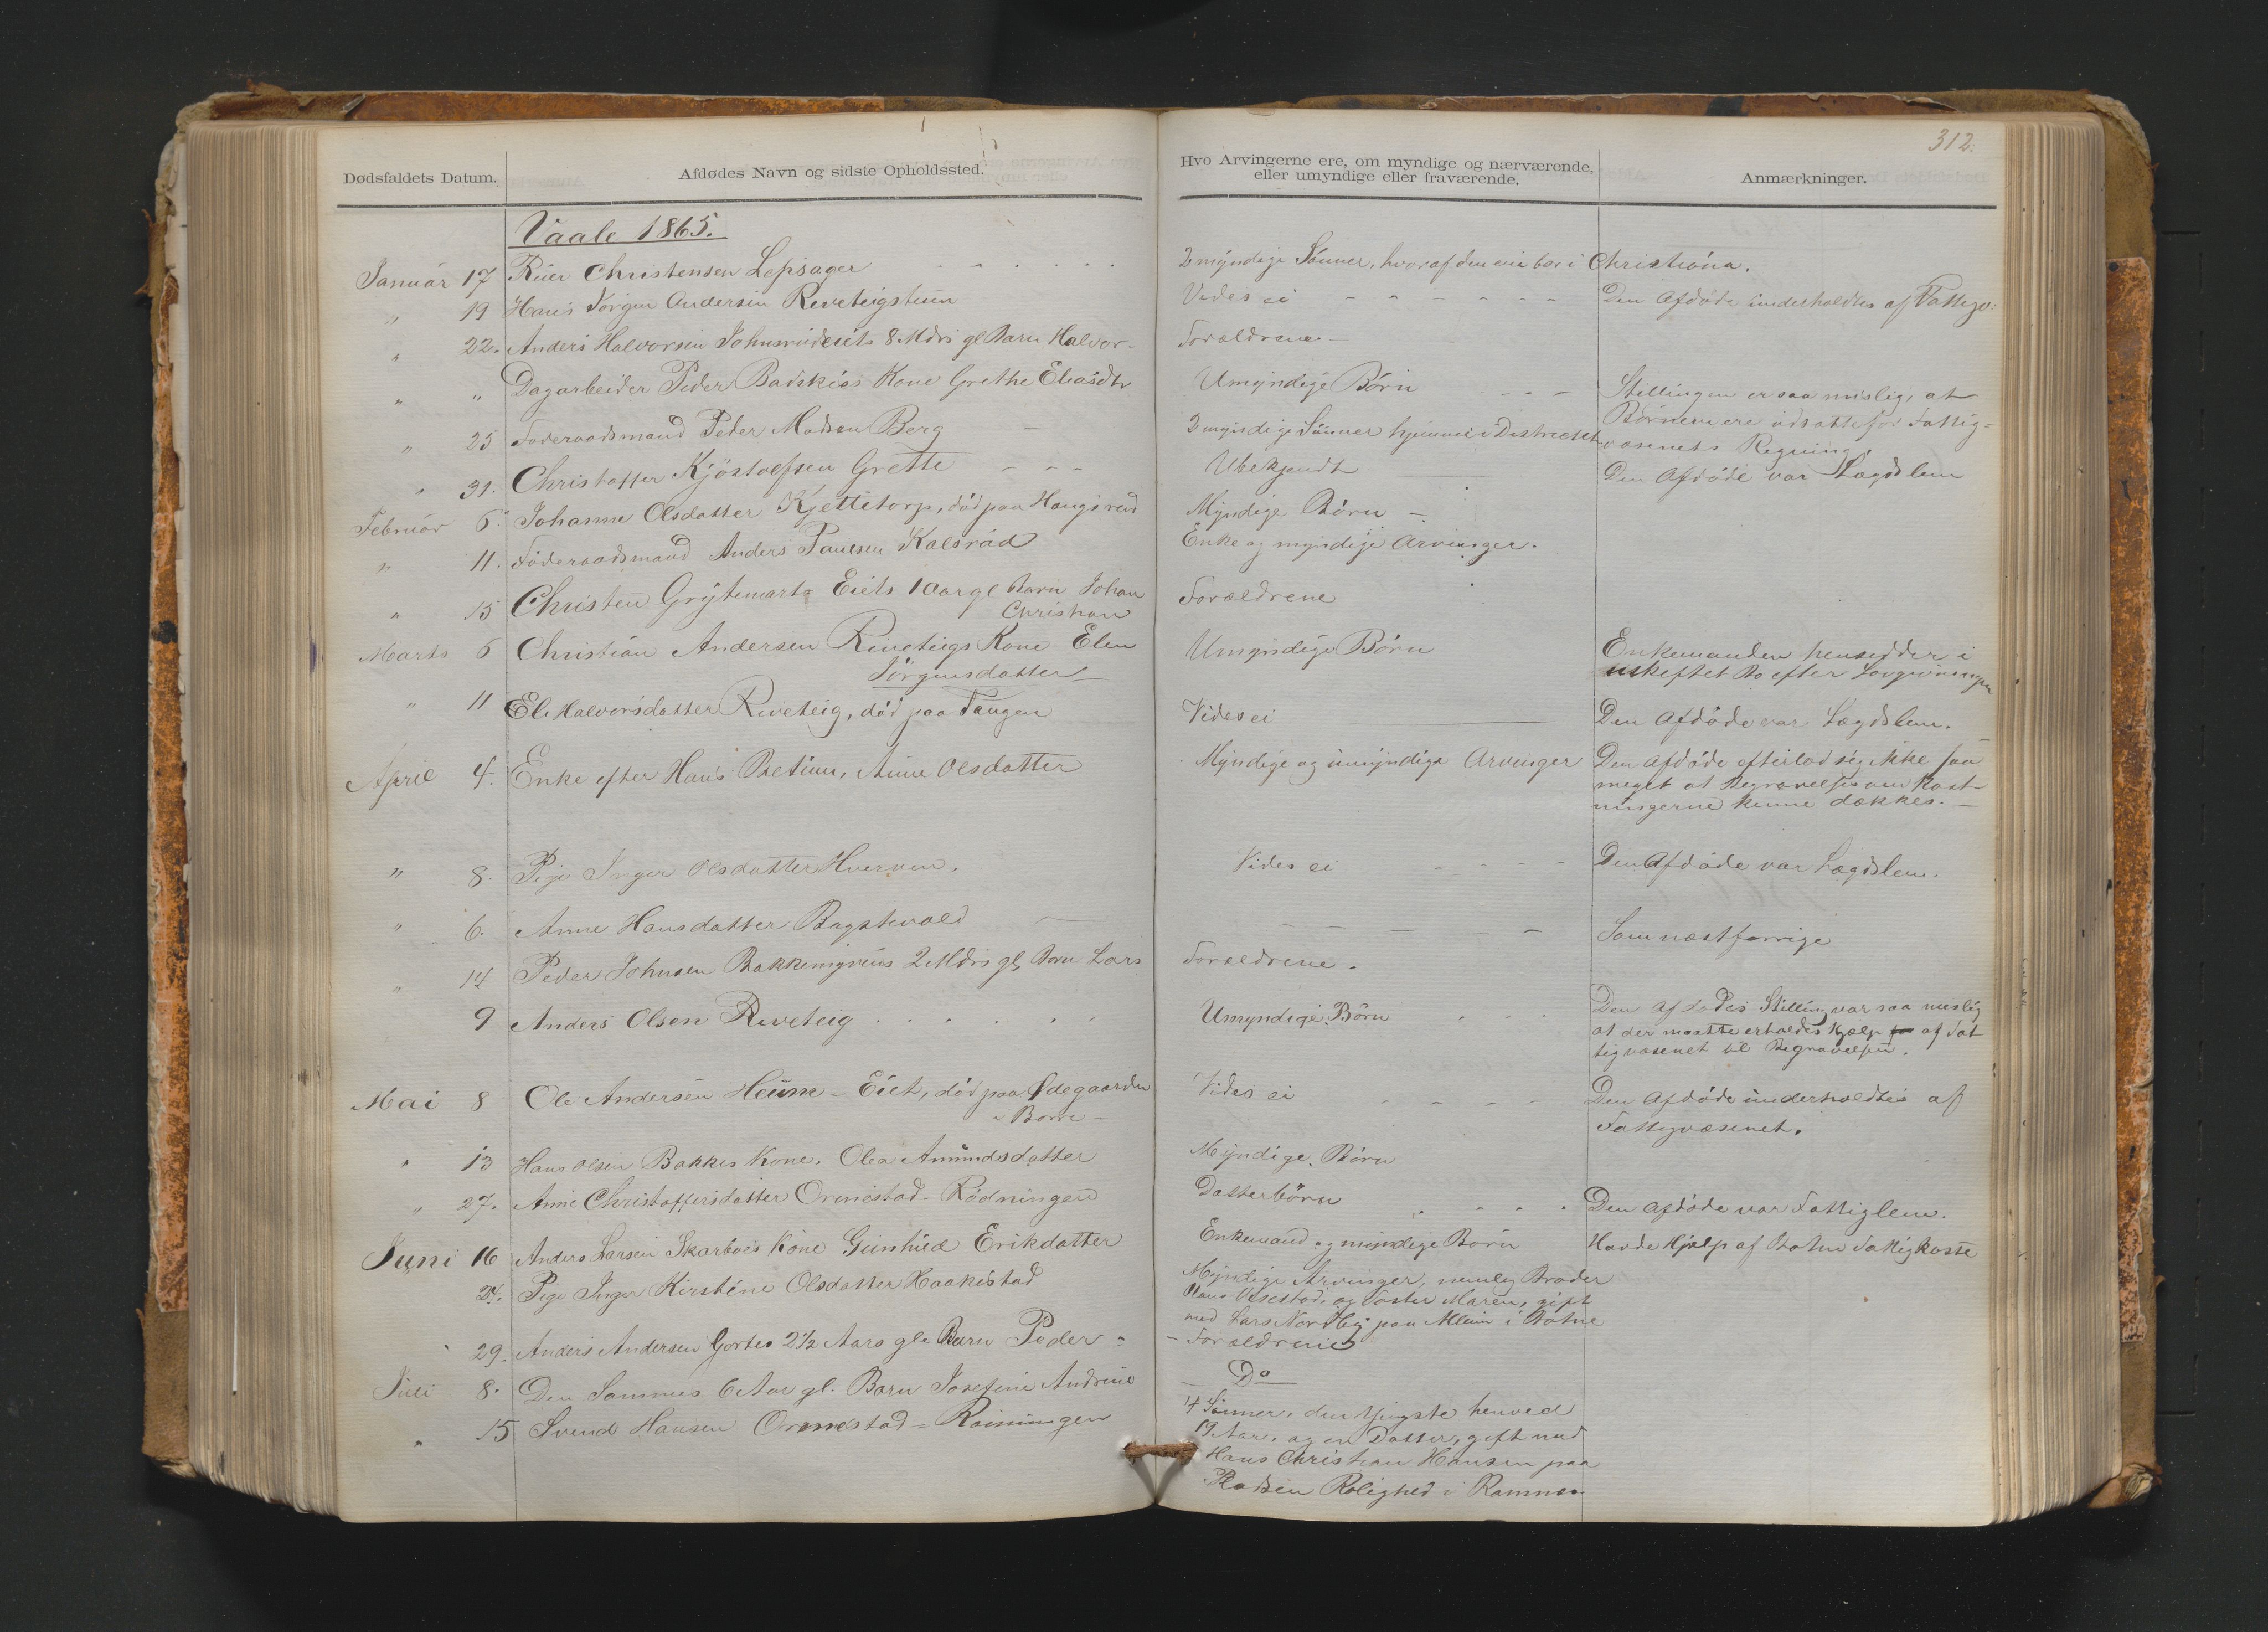 312.
Dødsfaldets Datum. Afdødes Navn og sidste Opholdssted. Hvo Arvingerne ere, om myndige og nærværende,
eller umyndige eller fraværende. Anmærkninger.
Vaale 1865.
Januar 17 Christensen Lepsager 2 myndige Sønner, hvoraf den ene bor i Christiania.
" 19 Hans Jørgen Andersen Reveteigstuen Vides ei Den Afdøde underholdtes af Fattigv:
" 22. Anders Halvorsen Johnsrudeiets 8 Mdrs gl Barn Halvor - Forældrene -
" " Dagarbeider Peder Badskiøs Kone Grethe Eliasdtr Umyndige Børn Stillingen er saa mislig, at
Børnene ere udsatte for Fattig-
væsenets Regning.
" 25 Føderaadsmand Peder Madsen Berg 2 myndige Sønner hjemme i Districtet
" 31. Christoffer Kjøstolfsen Grette Ubekjendt Den Afdøde var Lægdslem
Februar 6 Johanne Olsdatter Kjettitorp, død paa Haugsrud Myndige Børn -
" 11. Føderaadsmand Anders Paulsen Kalsrød Enke og myndige Arvinger.
" 15 Christen Grytemarts Eiets 1 aar gl Barn Johan
Christian Forældrene
Marts 6 Christian Andersen Reveteigs Kone Elen
Jørgensdatter Umyndige Børn Enkemanden hensidder i
uskiftet Bo efter Lovgivningen
" 11 Eli Halvorsdatter Reveteig, død paa Tangen Vides ei Den Afdøde var Lægdslem.
April 4. Enke efter Hans Anne Olsdatter Myndige og umyndige Arvinger Den Afdøde efterlod sig ikke saa
meget at Begravelsesomkost-
ningerne kunne dækkes. -
" 8. Pige Inger Olsdatter Hverven. Vides ei Den Afdøde var Lægdslem.
" 6. Anne Hansdatter Bagstevold Som næstforrige
" 14 Peder Johnsen 2 Mdrs gl. Barn Lars Forældrene.
9 Anders Olsen Reveteig Umyndige Børn Den Afdødes Stilling var saa mislig
at der maatte erholdes Hjælp af Fat-
tigvæsenet til Begravelsen.
Mai 8 Ole Andersen Heum-Eiet, død paa Ødegaarden
- Borre - Vides ei Den Afdøde underholdtes af
Fattigvæsenet.
" 13 Hans Olsen Bakkes Kone. Olea Amundsdatter Myndige Børn
" 27. Anne Christoffersdatter Ormestad-Rødningen Datterbørn Den Afdøde var Fattiglem.
Juni 16 Anders Larsen Skarboes Kone Gunhild Erikdatter Enkemand og myndige Børn Havde Hjælp af Botne Fattigkasse
24. Pige Inger Kirstine Olsdatter Haakestad Myndige Arvinger, nemlig Broder
Hans Visestad, og Søster Maren, gift
med Lars Nordby paa i Botne
29. Anders Andersen Gortes 2 1/2 Aars gle Barn Peder - - Forældrene
Juli 8. Den Sammes 6 Aar gl. Barn Josefine Andrine Do
" 15 Svend Hansen Ormestad-Rønningen 4 Sønner, den yngste henved
19 Aar, og en Datter, gift med
Hans Christian Hansen paa
Pladsen Rolighed i Ramnes.